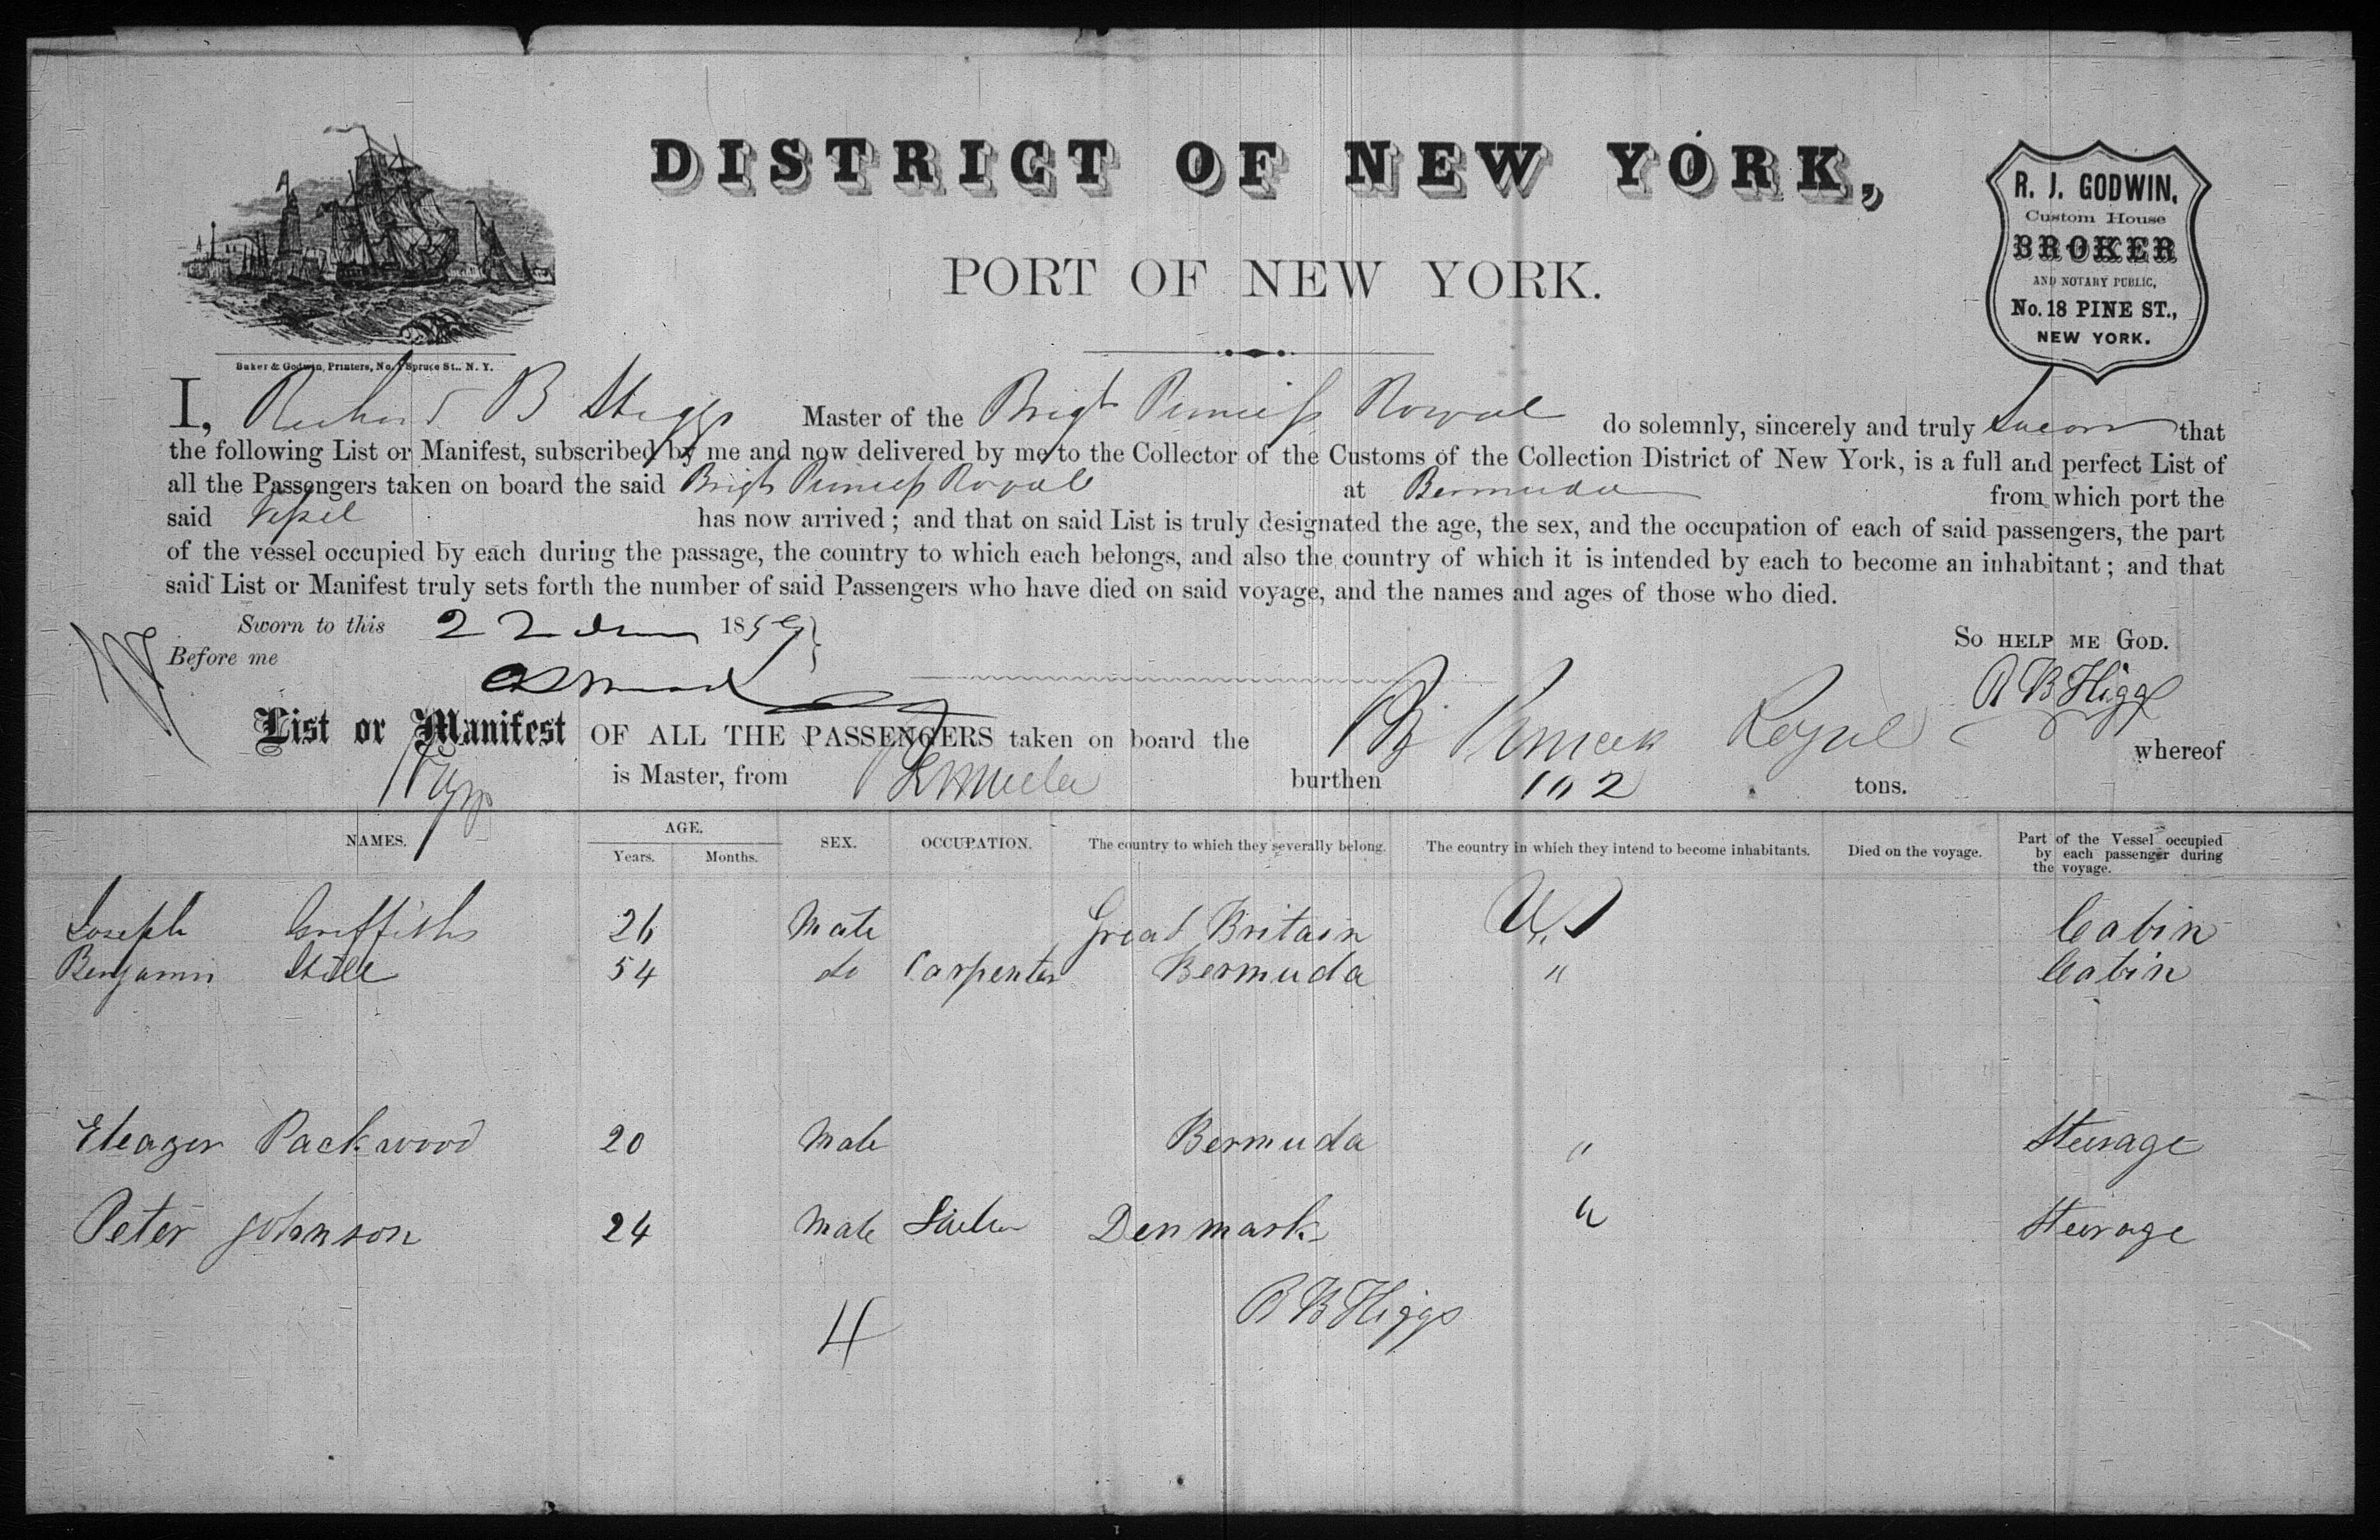 DISTRICT OF NEW YORK,
PORT OF NEW YORK.
R. J. GODWIN,
Custom House
BROKER
AND NOTARY PUBLIC,
No. 18 PINE ST.,
NEW YORK.
Baker & Godwin, Printers, No. 1 Spruce St., N. Y.
I, Richard B Higgs Master of the Brigt Princess Royal do solemnly, sincerely and truly swear that
the following List or Manifest, subscribed by me and now delivered by me to the Collector of the Customs of the Collection District of New York, is a full and perfect List of
all the Passengers taken on board the said Brigt Princess Royal at Bermuda from which port the
said Vessel has now arrived; and that on said List is truly designated the age, the sex, and the occupation of each of said passengers, the part
of the vessel occupied by each during the passage, the country to which each belongs, and also the country of which it is intended by each to become an inhabitant; and that
said List or Manifest truly sets forth the number of said Passengers who have died on said voyage, and the names and ages of those who died.
Sworn to this 22 1859 So help me God.
Before me
R B Higgs
List or Manifest OF ALL THE PASSENGERS taken on board the Brig Princess Royal whereof
Higgs is Master, from Bermuda burthen 102 tons.
NAMES. AGE. SEX. OCCUPATION. The country to which they severally belong. The country in which they intend to become inhabitants. Died on the voyage. Part of the Vessel occupied by each passenger during the voyage.
Years. Months.
Joseph Griffiths 26 Male Great Britain U.S Cabin
Benjamin Still 54 do Carpenter Bermuda " Cabin
Eleazer Packwood 20 Male Bermuda " Steerage
Peter Johnson 24 Male Sailor Denmark " Steerage
4 R B Higgs